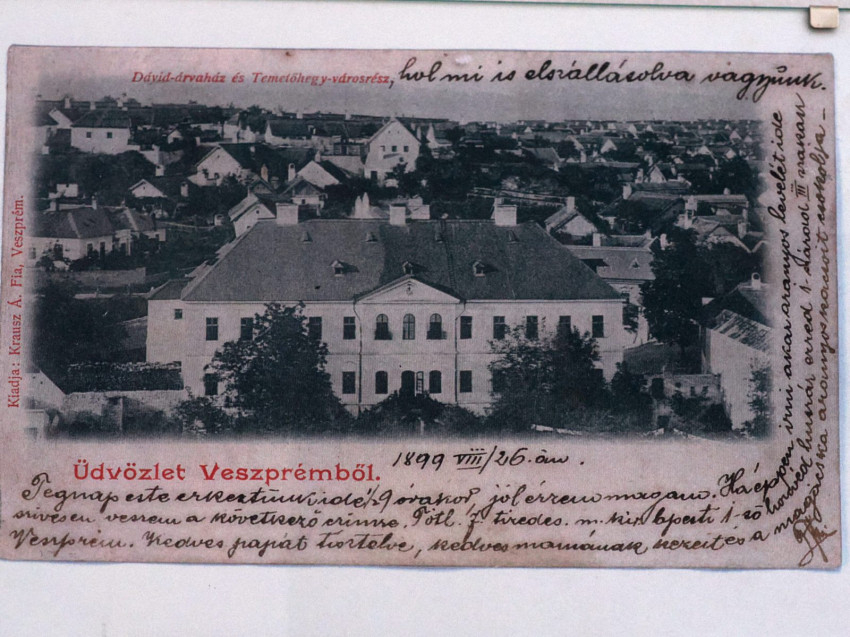 Dávid-árvaház és Temetőhegy-városrész,
hol mi is elszállásolva vagyunk.
Kiadja: Krausz Á. Fia, Veszprém.
Üdvözlet Veszprémből.
1899 VIII/26.-án.
Tegnap este érkeztünk ide 1/2 9 órakor, jól érzem magam. Ha éppen irni akar aranyos levelét ide
szivesen veszem a következő czimre, Tótl. Z. tizedes. m. kir. bpesti 1-ső honvéd huszár ezred 1. század III szakasz
Veszprém. Kedves papát tisztelve, kedves mamának kezeit és a magácska aranyos kacsóit csókolja